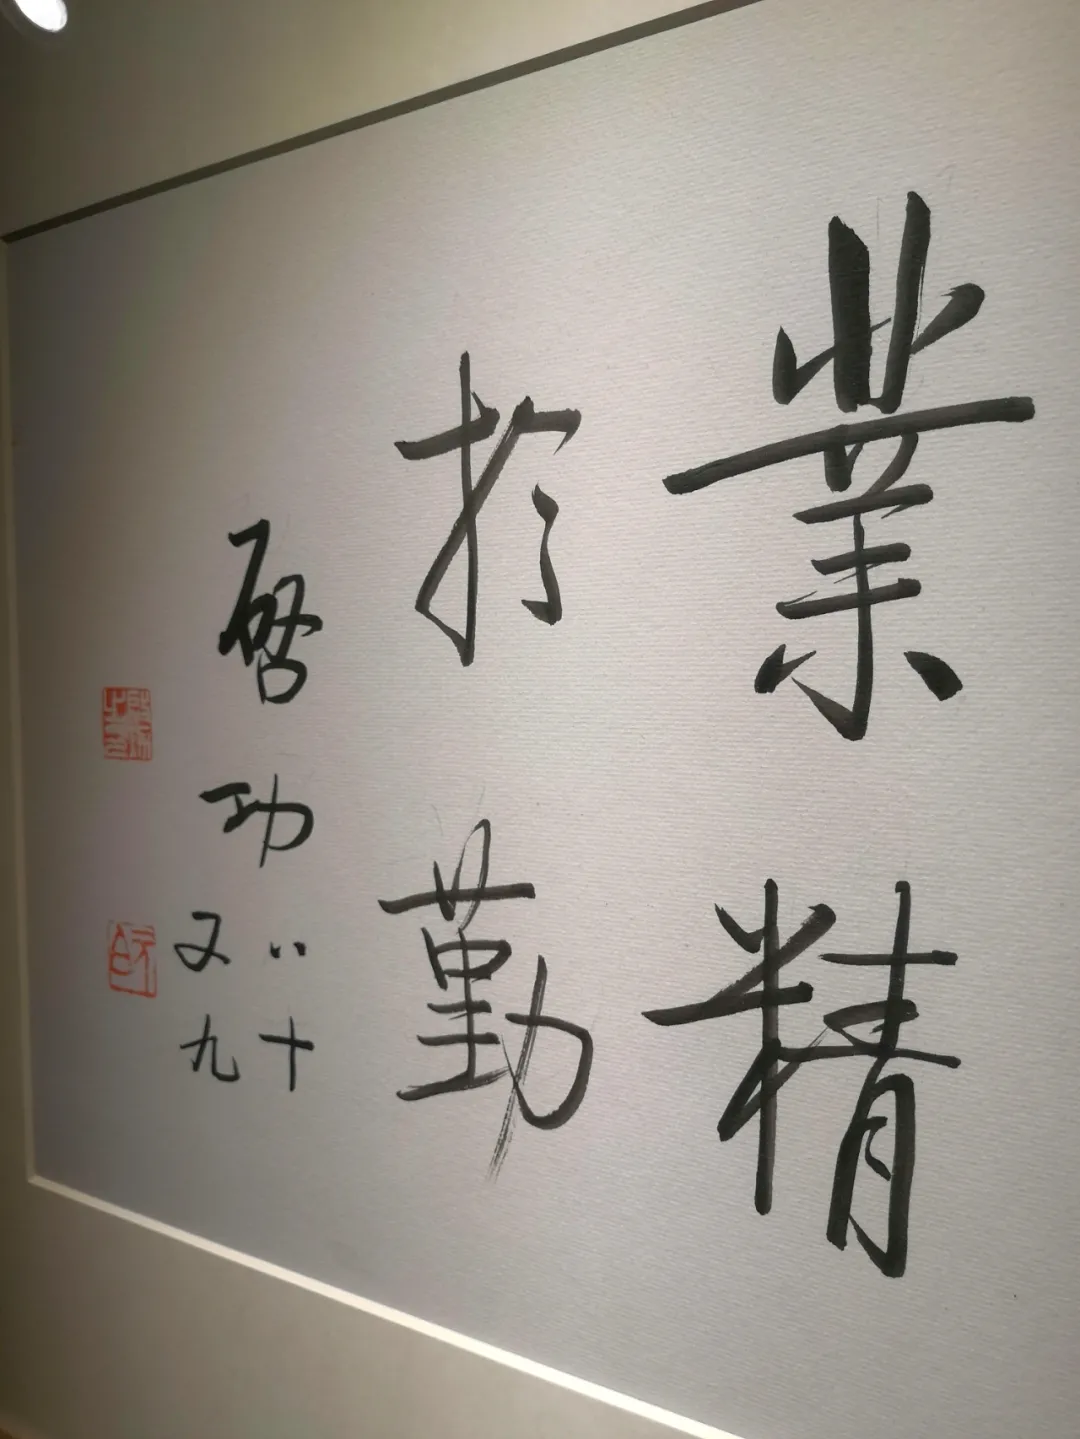 業精
於勤
啓功
八十
又九